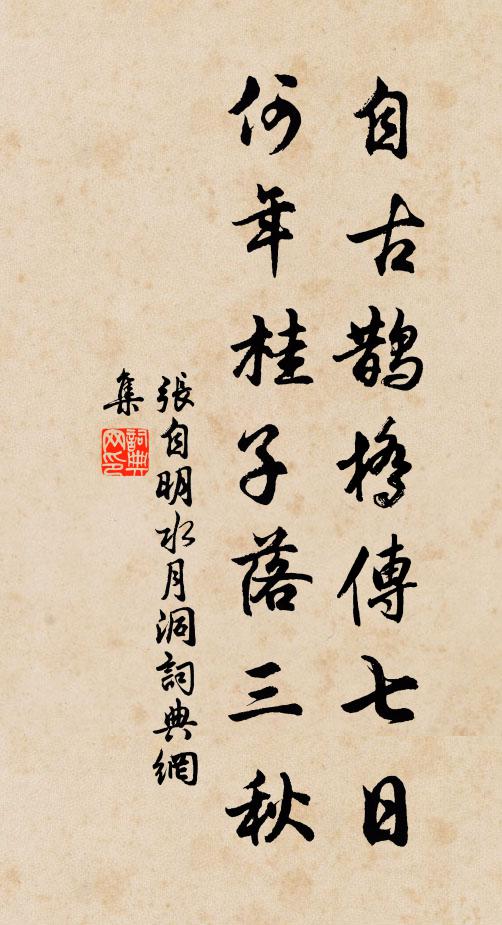 自古鵲橋傳七日
何年桂子落三秋
張自明水月洞詞典網
集
詞典網印